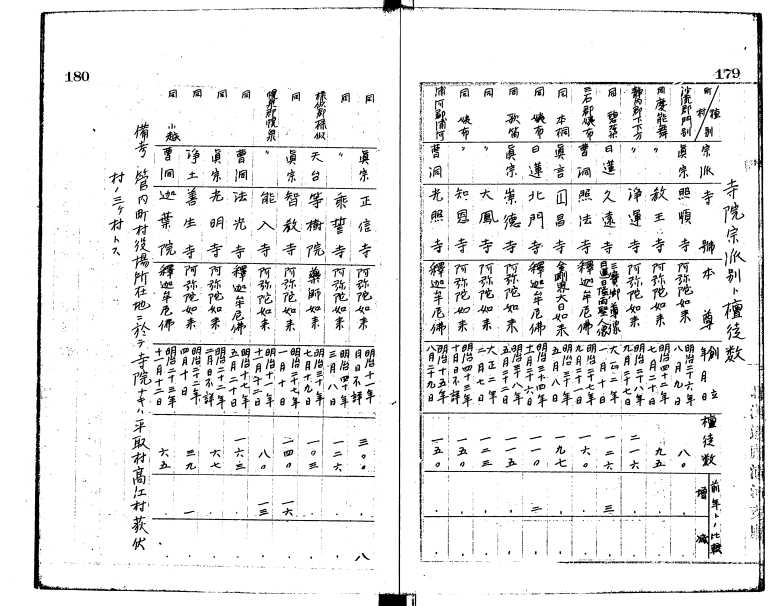 179
寺院宗派別ト檀徒数
町村/種別 宗派 寺號 本尊 創立年月日 檀徒数 前年トノ比較 增 減
沙流郡門別 眞宗 照順寺 阿弥陀如来 明治二十六年八月九日 八〇
同 慶能舞 〃 教王寺 阿弥陀如来 明治四十二年七月二十日 九五
静内郡下下方 〃 浄運寺 阿弥陀如来 明治二十八年九月二十七日 二一六
同 碧蘂 日蓮 久遠寺 一月十日 一二六 三
三石郡姨布 曹洞 照法寺 釋迦牟尼佛 明治二十七年九月二十三日 一六〇
同 本桐 眞言 囯昌寺 金剛界大日如来 明治三十年五月八日 九七
同 姨布 日蓮 北門寺 釋迦牟尼佛 明治三十四年十二月二十六日 一一〇 二
同 歌笛 眞宗 崇德寺 阿弥陀如来 明治三十八年五月二十日 一一五
同 〃 大鳳寺 阿弥陀如来 大正二年二月七日 一二三
同 姨布 〃 知恩寺 阿弥陀如来 明治三十五年十月日不詳 一五〇
浦河郡浦河 曹洞 光照寺 釋迦牟尼佛 明治十五年八月二十九日 一五〇
180
同 眞宗 正信寺 阿弥陀如来 明治十一年月日不詳 三〇〇 八
同 〃 乘誓寺 阿弥陀如来 明治四十年三月八日 一二六
様似郡様似 天台 等樹院 藥師如来 明治三十年七月十九日 一〇三
同 眞宗 智教寺 阿弥陀如来 明治二十七年一月八日 二四〇 一六
幌泉郡幌泉 〃 能入寺 阿弥陀如来 明治十一年十一月十二日 八〇 一三
同 曹洞 法光寺 釋迦牟尼佛 明治十七年五月二十日 一六三
同 眞宗 光明寺 阿弥陀如来 明治二十年二月日不詳 六七
同 浄土 善生寺 阿弥陀如来 明治二十二年四月十日 三九 一
同 小越 曹洞 迦葉院 釋迦牟尼佛 明治二十三年十一月十二日 六五
備考 管内町村役場所在地ニ於テ寺院ナキハ平取村高江村荻伏
村ノ三ケ村トス